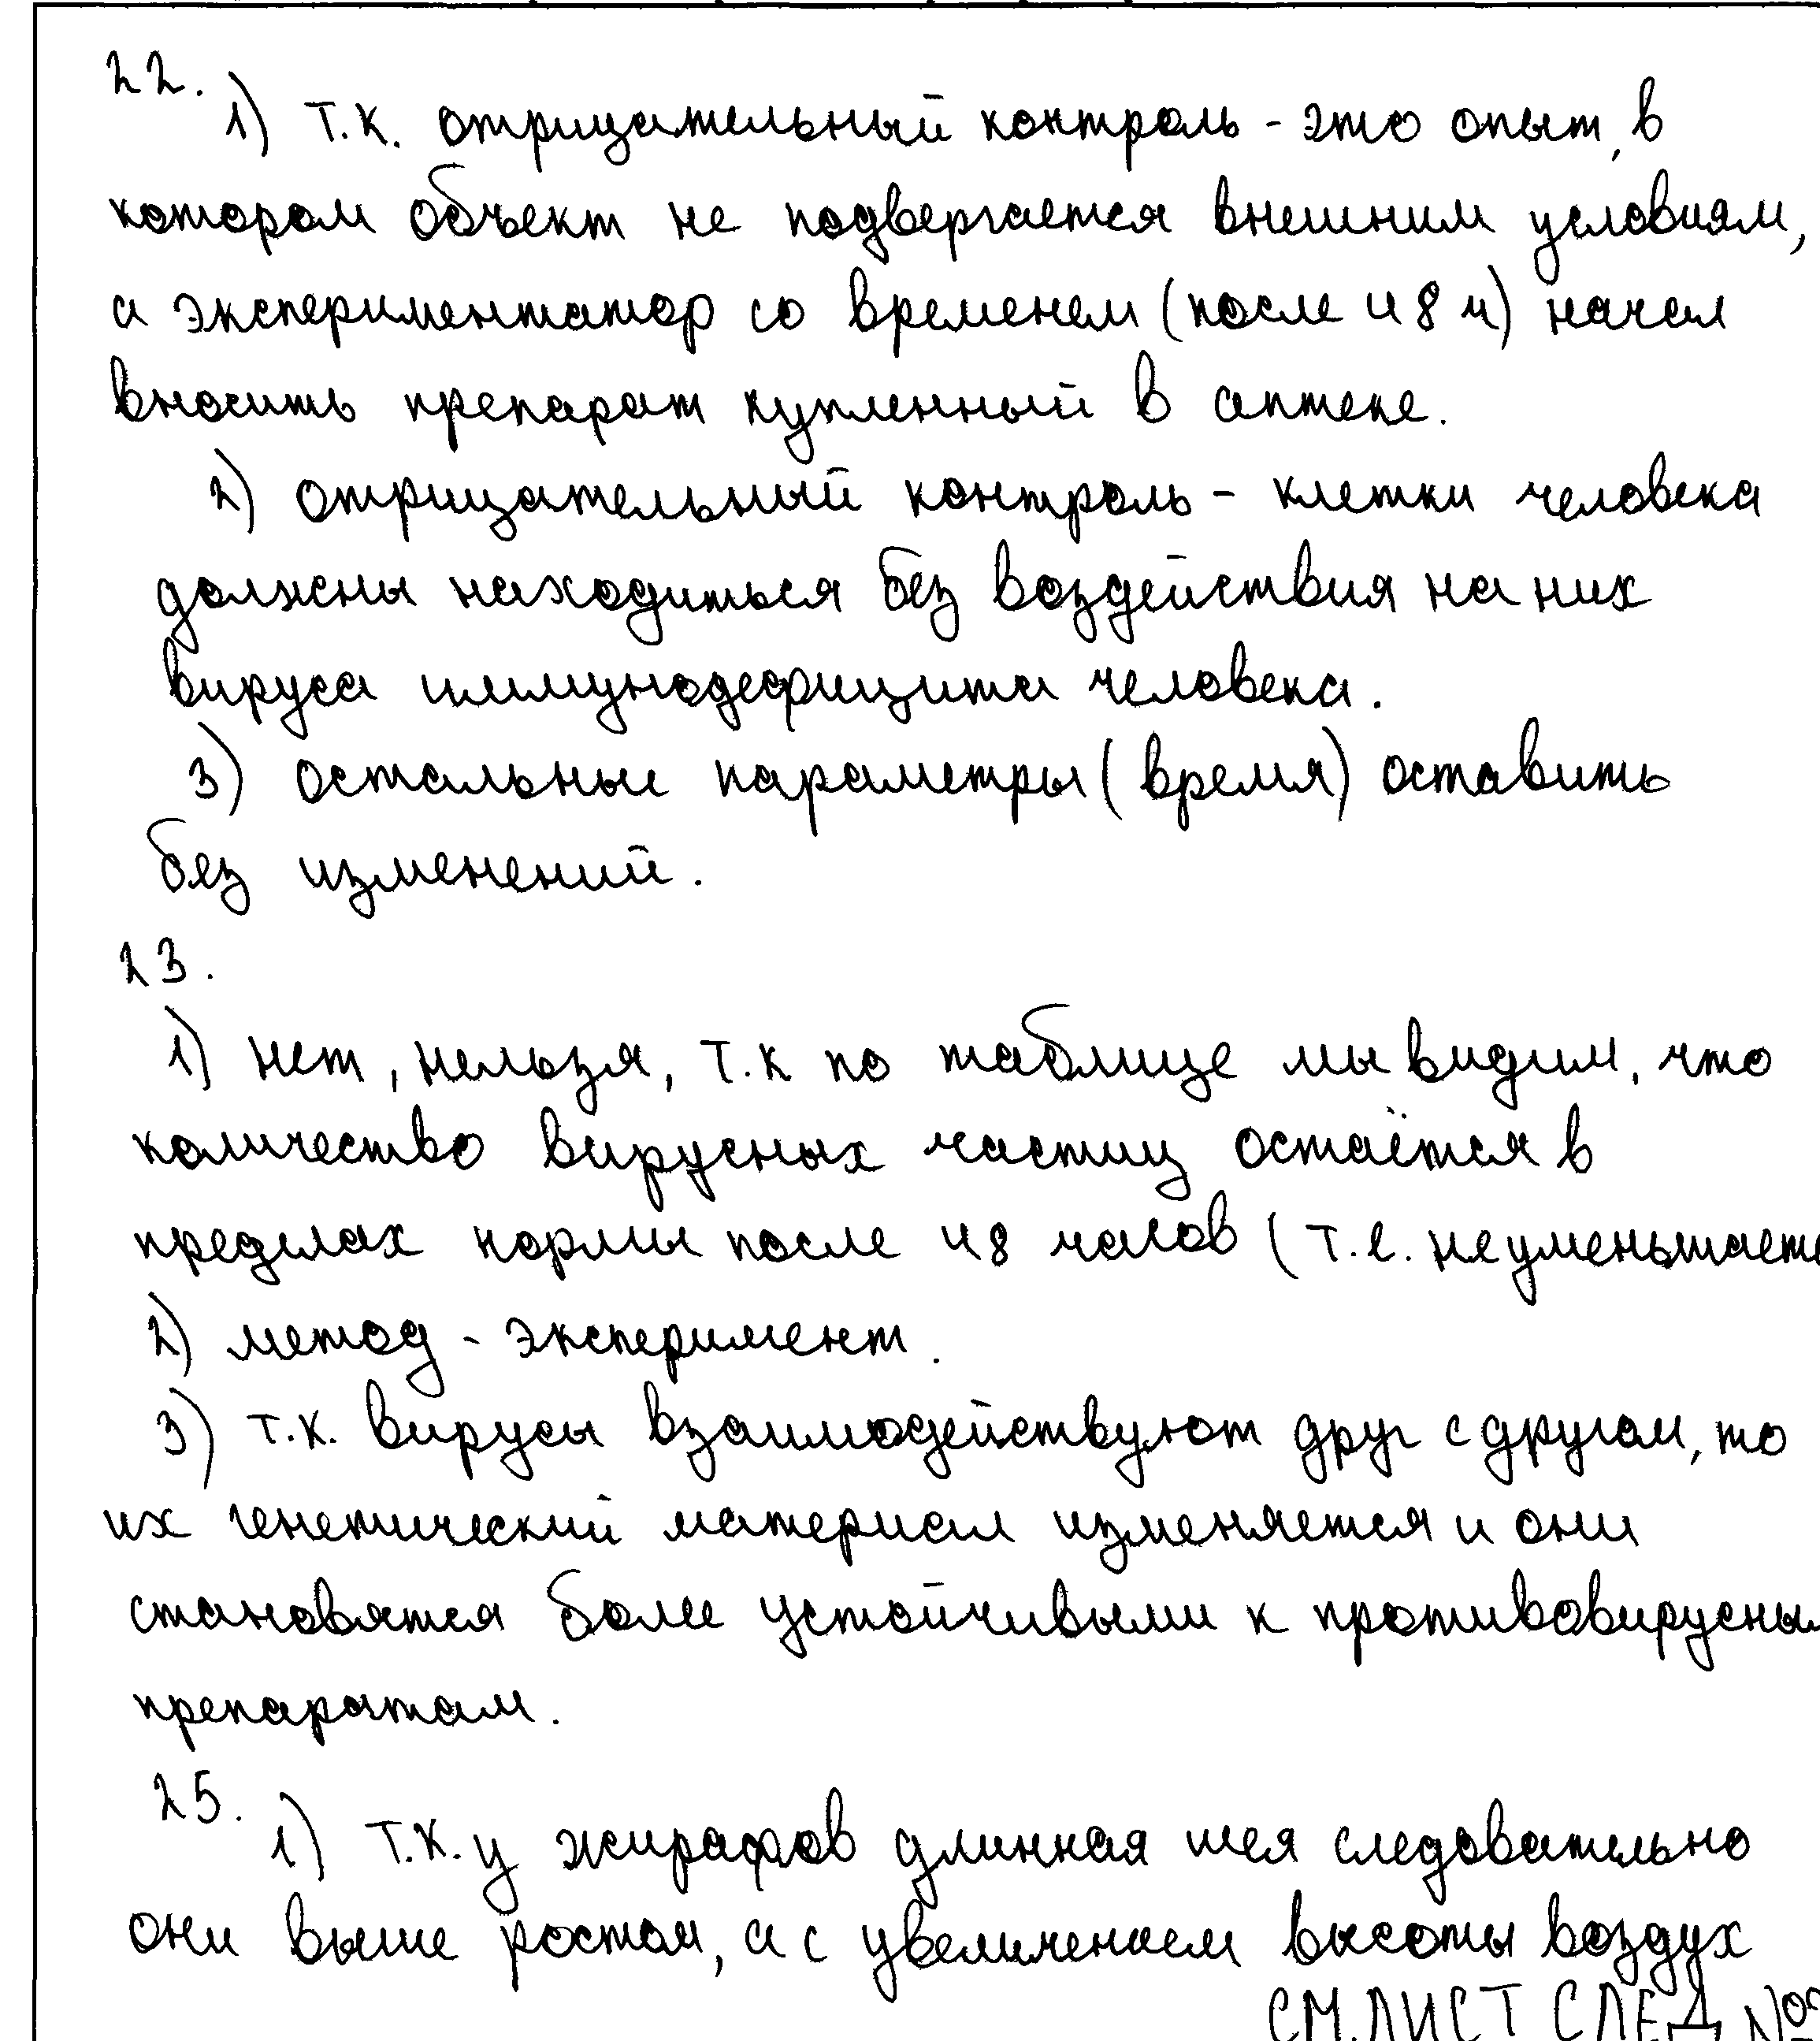 22.
1) т.к. отрицательный контроль - это опыт, в
котором объект не подвергается внешним условиям,
а экспериментатор со временем (после 48 ч) начал
вносить препарат купленный в аптеке.
2) отрицательный контроль - клетки человека
должны находиться без воздействия на них
вируса иммунодефицита человека.
3) остальные параметры (время) оставить
без изменений.
23.
1) нет, нельзя, т.к по таблице мы видим, что
количество вирусных частиц остаётся в
пределах нормы после 48 часов (т.е. не уменьшаетс
2) метод - эксперимент.
3) т.к. вирусы взаимодействуют друг с другом, то
их генетический материал изменяется и они
становятся более устойчивыми к противовирусны
препаратам.
25.
1) т.к. у жирафов длинная шея следовательно
они выше ростом, а с увеличением высоты воздух
СМ.ЛИСТ СЛЕД №